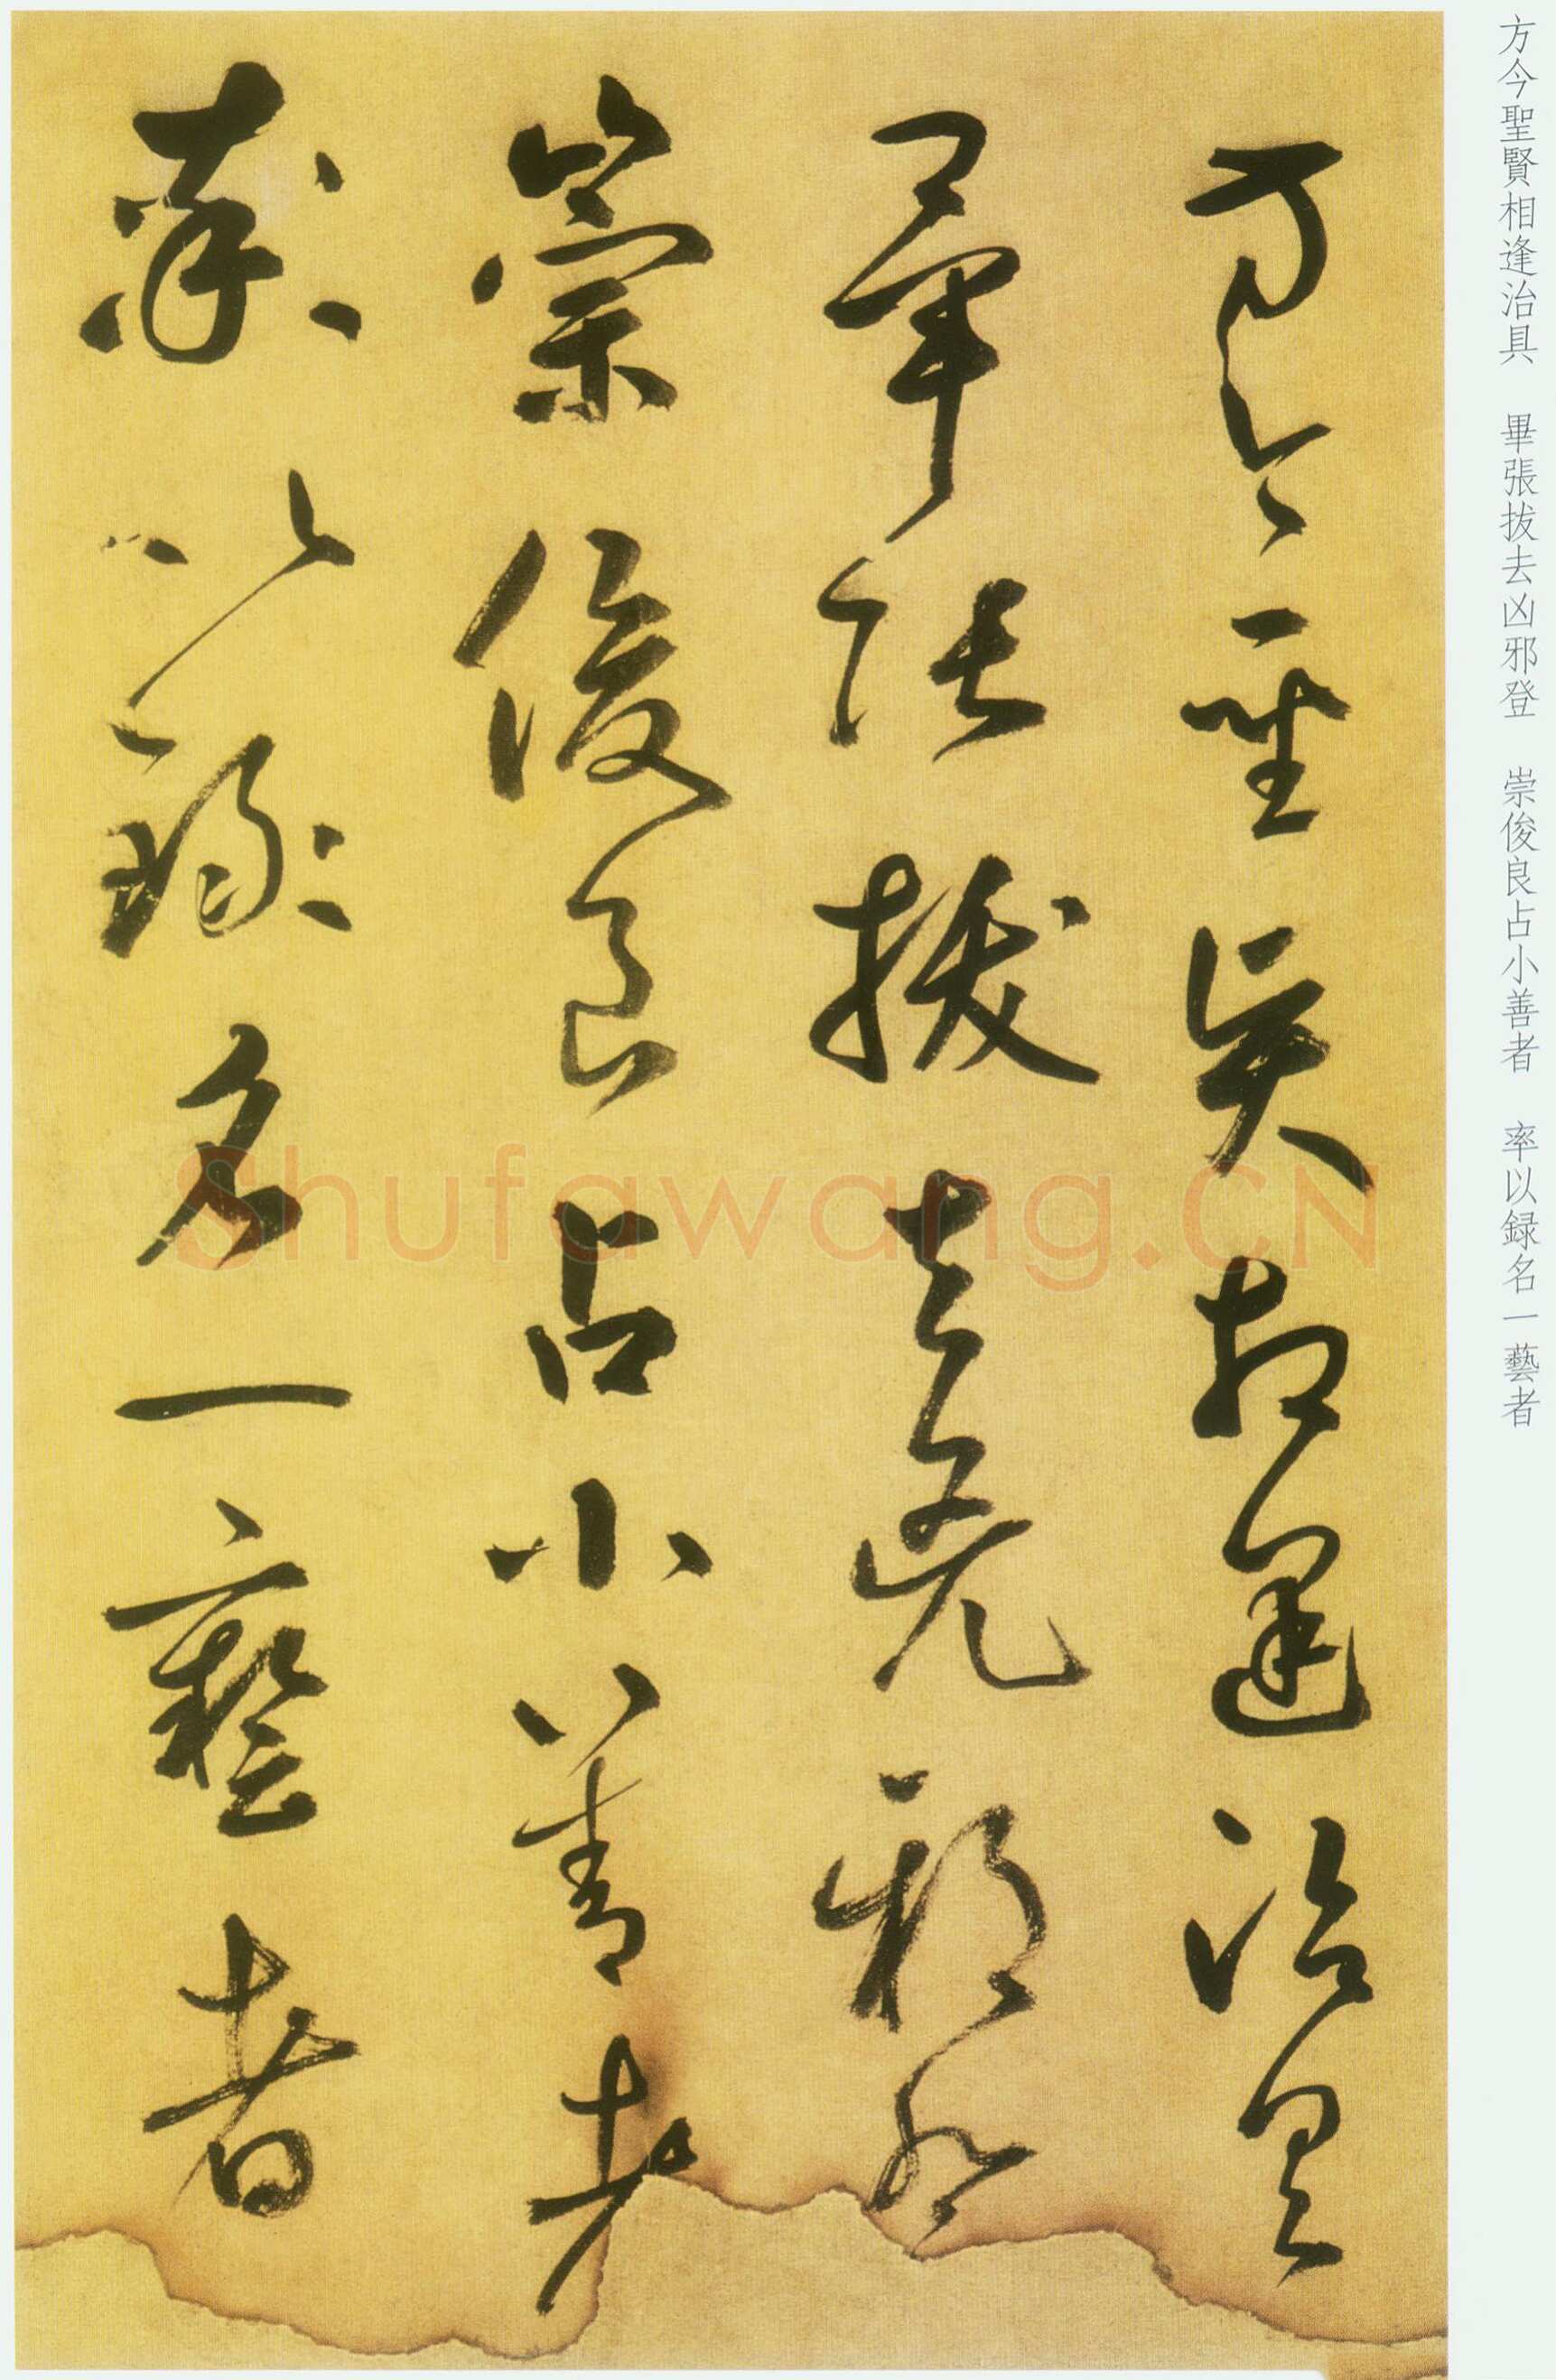 方今聖賢相逢治具　畢張拔去凶邪登　崇俊良占小善者　率以録名一藝者
方今聖賢相逢治具
畢張拔去凶邪登
崇俊良占小善者
率以録名一藝者
Shufawang.CN